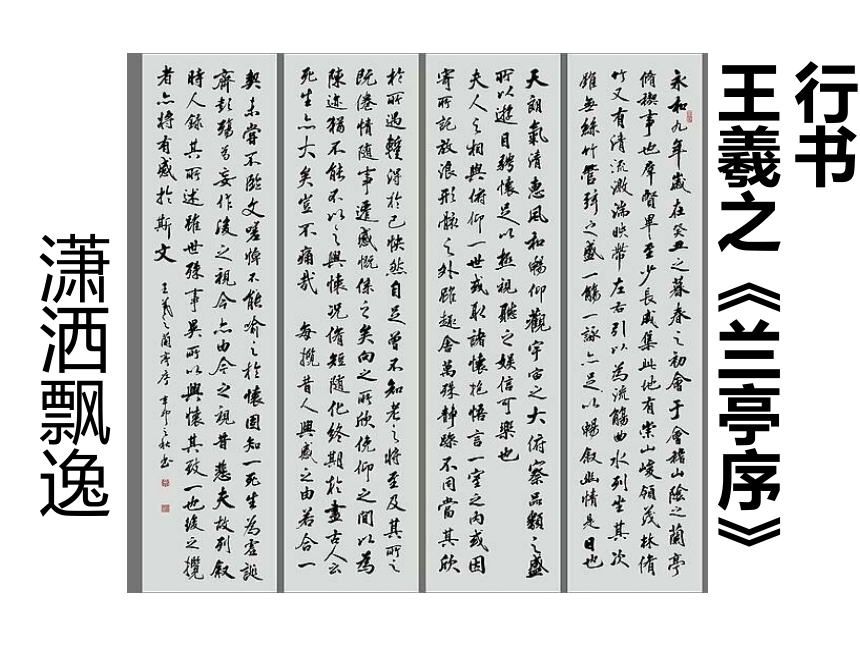 行书
王羲之《兰亭序》
永和九年歲在癸丑之暮春之初會于會稽山陰之蘭亭
脩禊事也群賢畢至少長咸集此地有崇山峻領茂林脩
竹又有清流激湍映帶左右引以為流觴曲水列坐其次
雖無絲竹管弦之盛一觴一詠亦足以暢敘幽情是日也
天朗氣清惠風和暢仰觀宇宙之大俯察品類之盛
所以遊目騁懷足以極視聽之娛信可樂也
夫人之相與俯仰一世或取諸懷抱悟言一室之內或因
寄所託放浪形骸之外雖趣舍萬殊靜躁不同當其欣
於所遇蹔得於己怏然自足曾不知老之將至及其所之
既倦情隨事遷感慨係之矣向之所欣俛仰之間以為
陳迹猶不能不以之興懷況脩短隨化終期於盡古人云
死生亦大矣豈不痛哉 每攬昔人興感之由若合一
契未嘗不臨文嗟悼不能喻之於懷固知一死生為虛誕
齊彭殤為妄作後之視今亦由今之視昔悲夫故列敘
時人錄其所述雖世殊事異所以興懷其致一也後之攬
者亦將有感於斯文 王羲之蘭亭序 辛卯之秋書
潇洒飘逸